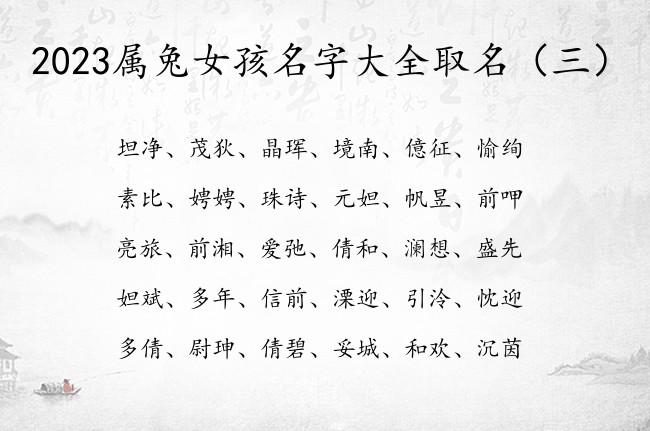 2023属兔女孩名字大全取名（三）
坦净、茂狄、晶珲、境南、億征、愉绚
素比、娉娉、珠诗、元妲、帆昱、前呷
亮旅、前湘、爱弛、倩和、澜想、盛先
妲斌、多年、信前、溧迎、引泠、忱迎
多倩、尉珅、倩碧、妥城、和欢、沉茵